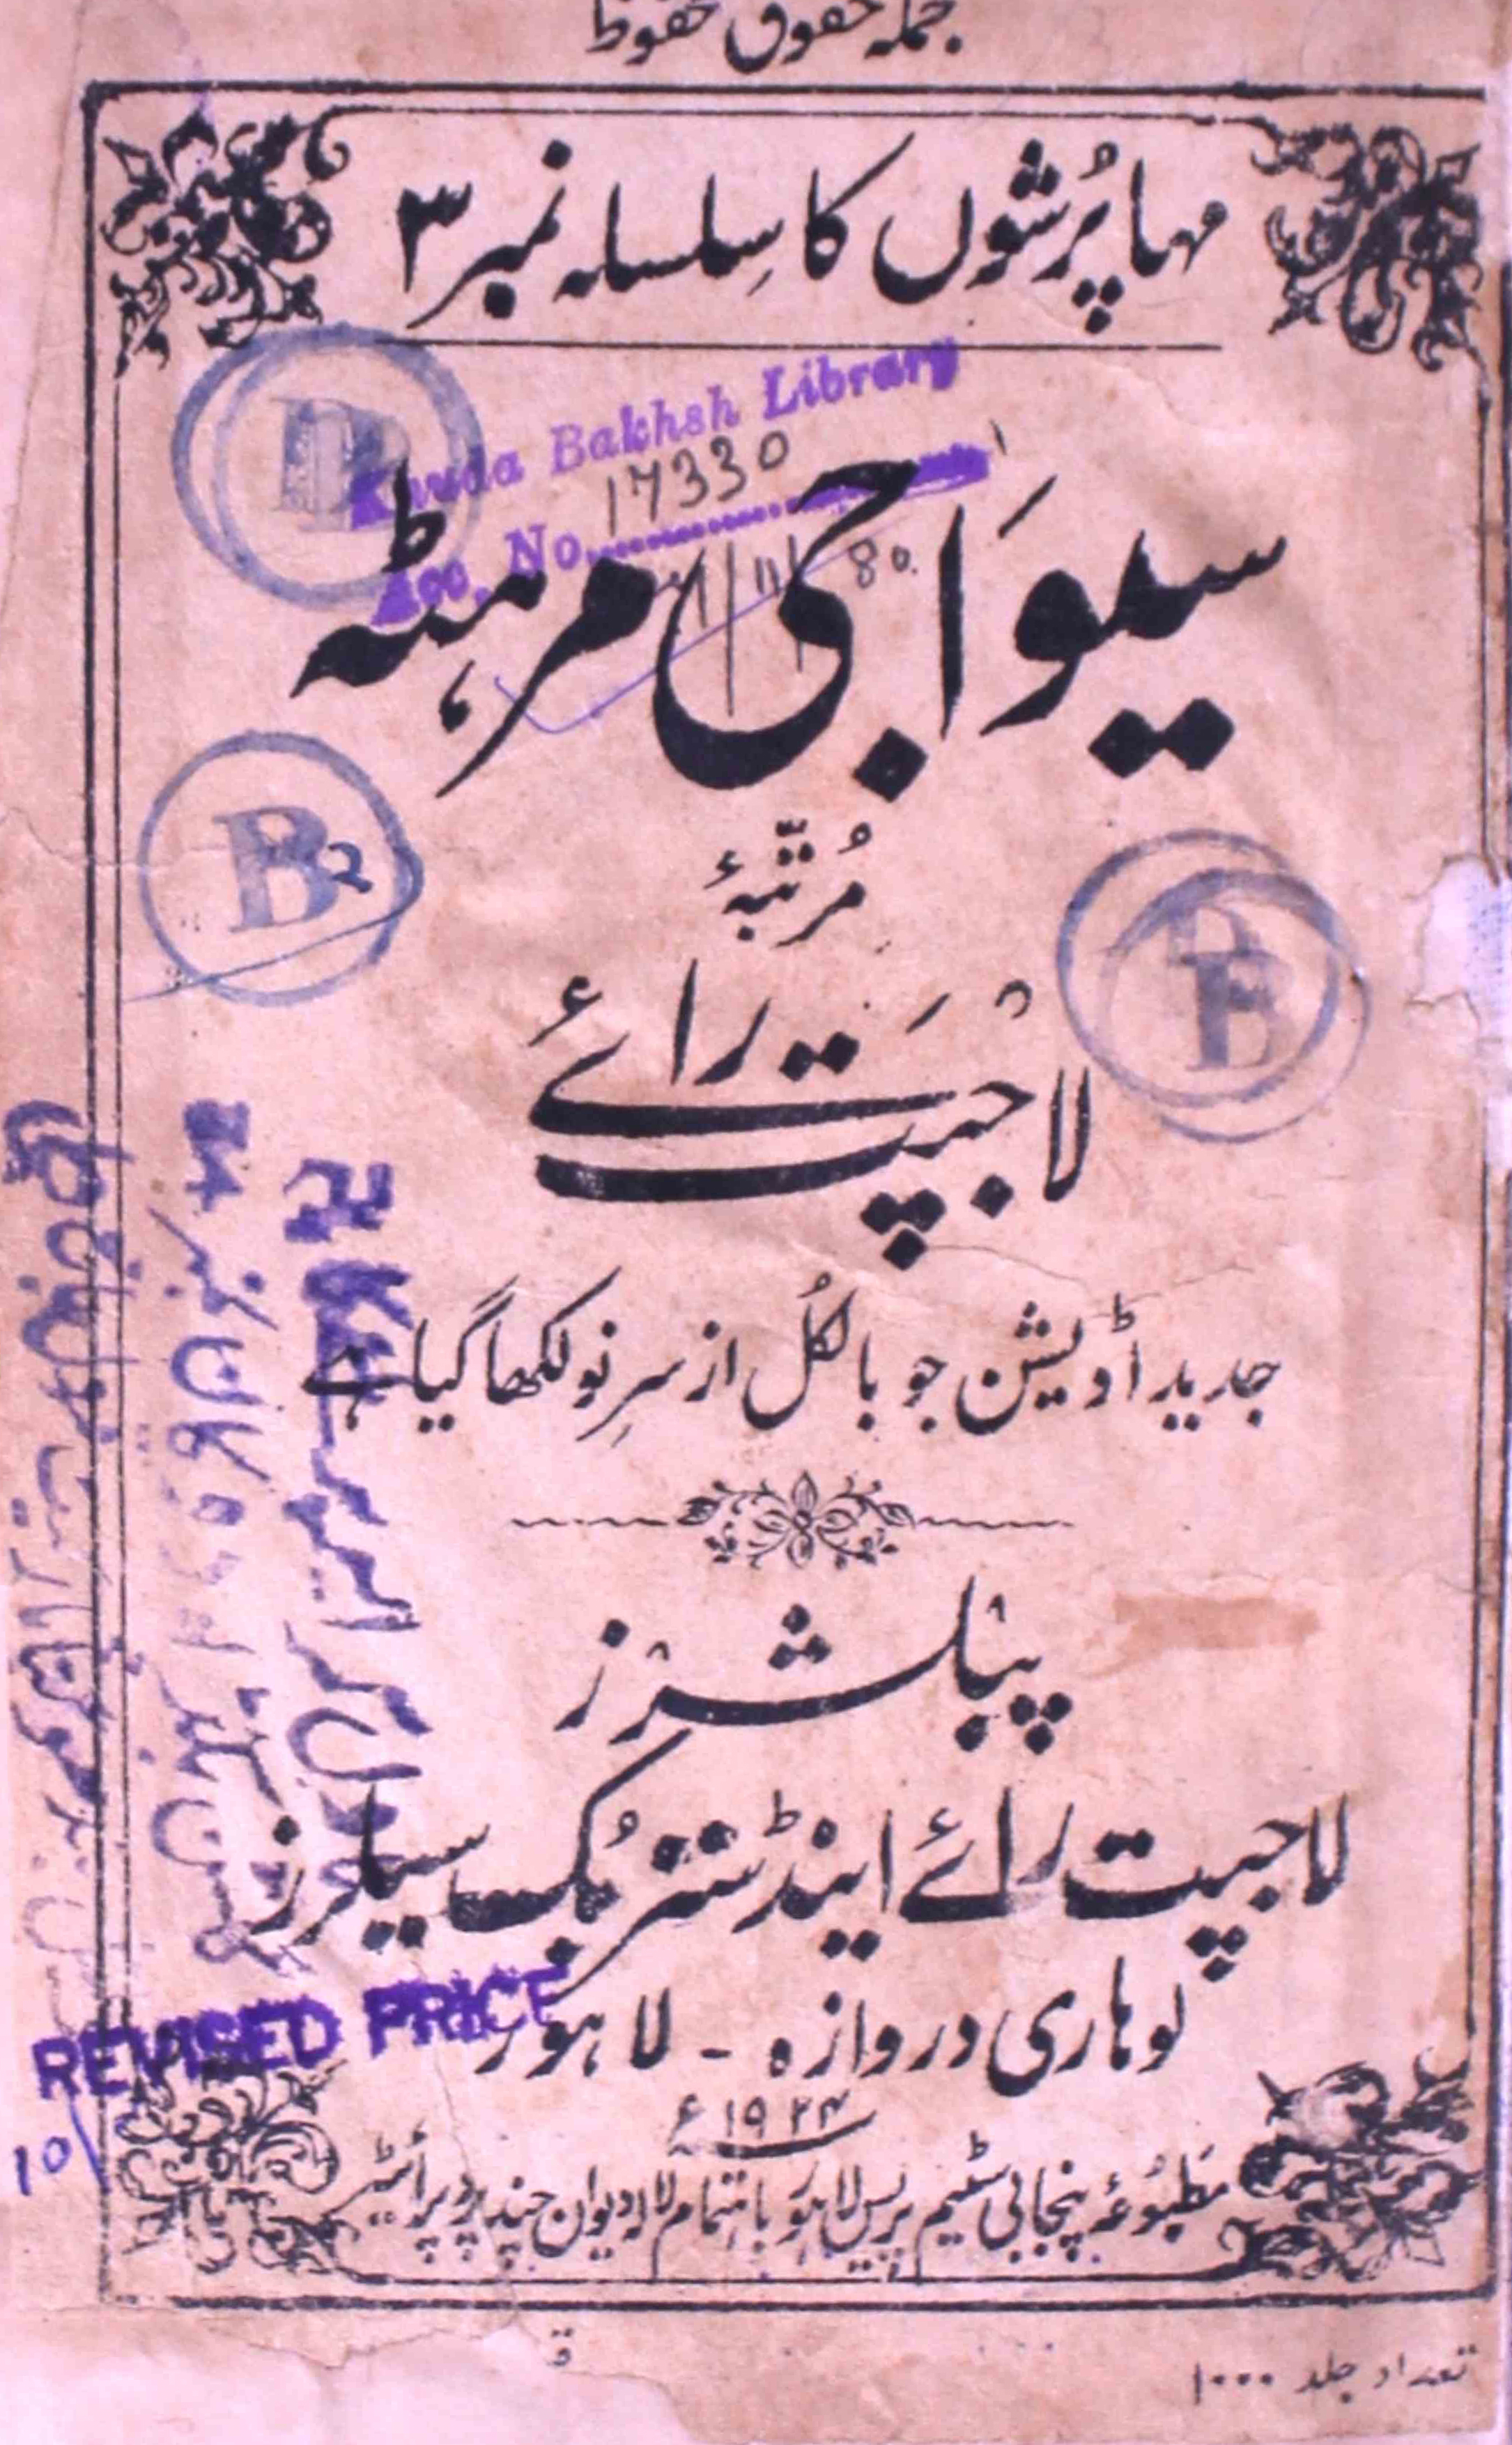 جملہ حقوق محفوظ
مہا پُرشوں کا سِلسلہ نمبر ۳
Khuda Bakhsh Library
17330
Acc. No.
سیوَاجی مرہٹہ
مُرتّبۂ
لاجپَت رائے
B2
B
جدید اڈیشن جو بالکُل از سرِ نو لکھا گیا ہے
پبلشرز
لاجپت رائے اینڈ سنز بُک سیلرز
لوہاری دروازہ - لاہور
REVISED PRICE
10/
۱۹۲۴ء
مَطبُوعۂ پنجابی سٹیم پریس لاہور باہتمام لالہ دیوان چند پروپرائٹر
تعداد جلد ۱۰۰۰